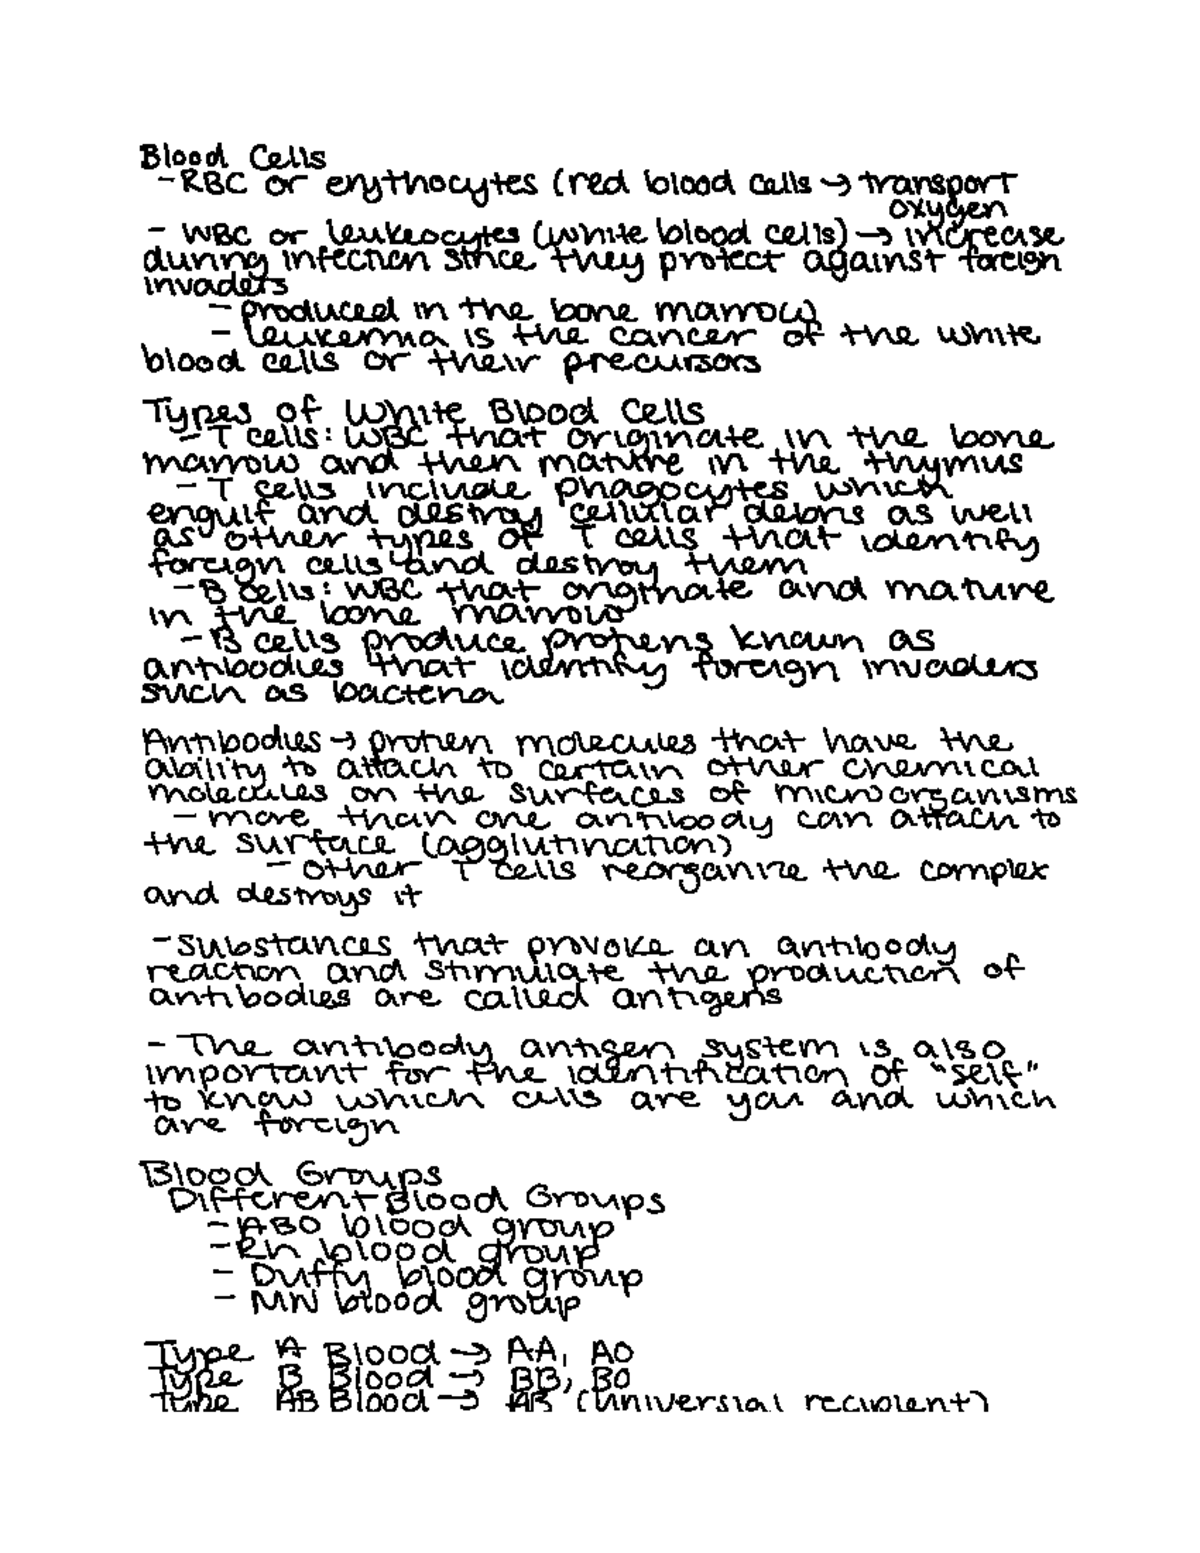 Blood Cells
- RBC or erythocytes (red blood cells → transport
oxygen
- WBC or leukeocytes (white blood cells) → increase
during infection since they protect against foreign
invaders
- produced in the bone marrow
- leukemia is the cancer of the white
blood cells or their precursors
Types of White Blood Cells
- T cells: WBC that originate in the bone
marrow and then mature in the thymus
- T cells include phagocytes which
engulf and destroy cellular debris as well
as other types of T cells that identify
foreign cells and destroy them
- B cells: WBC that originate and mature
in the bone marrow
- B cells produce proteins known as
antibodies that identify foreign invaders
such as bacteria
Antibodies → protien molecules that have the
ability to attach to certain other chemical
molecules on the surfaces of microorganisms
- more than one antibody can attach to
the surface (agglutination)
- other T cells reorganize the complex
and destroys it
- Substances that provoke an antibody
reaction and stimulate the production of
antibodies are called antigens
- The antibody antigen system is also
important for the identification of "self"
to know which cells are you and which
are foreign
Blood Groups
Different Blood Groups
- ABO blood group
- Rh blood group
- Duffy blood group
- MN blood group
Type A Blood → AA, AO
Type B Blood → BB, BO
Type AB Blood → AB (universial recipient)